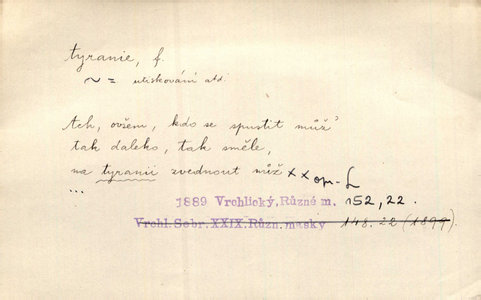 tyranie, f.
~ = utiskování atd.
Ach, ovšem, kdo se spustit můž'
tak daleko, tak směle,
na tyranii zvednout nůž xx opr. L
...
1889 Vrchlický, Různé m. 152, 22.
Vrchl. Sebr. XXIX. Různ. masky 148. 22 (1899).